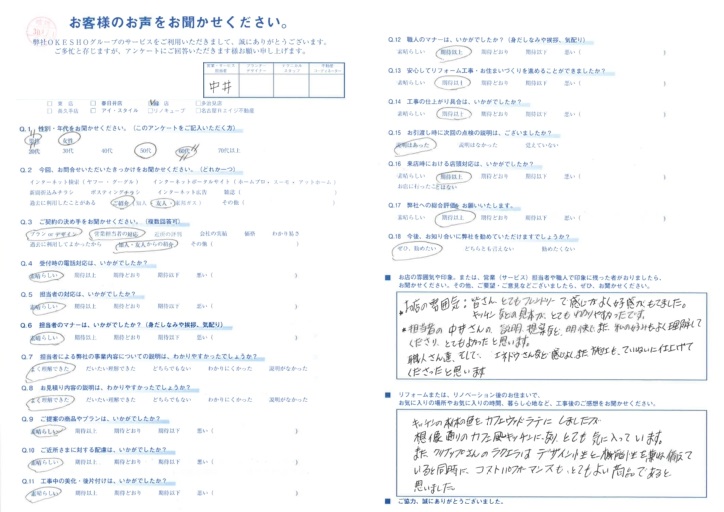 お客様のお声をお聞かせください。
弊社OKESHOグループのサービスをご利用いただきまして、誠にありがとうございます。
ご多忙と存じますが、アンケートにご回答いただけます様お願い申し上げます。
中井
Q.1 性別・年代をお聞かせください。(このアンケートをご記入いただく方)
男性 女性
20代 30代 40代 50代 60代 70代以上
Q.2 今回、お問合せいただいたきっかけをお聞かせください。(どれか一つ)
インターネット検索(ヤフー・グーグル) インターネットポータルサイト(ホームプロ・スーモ・アットホーム)
新聞折込みチラシ ポスティングチラシ インターネット広告 雑誌( )
過去に利用したことがある ご紹介(友人・ ) その他( )
Q.3 ご契約の決め手をお聞かせください。(複数回答可)
プラン or デザイン 営業担当者の対応 会社の実績 価格 わかり易さ
過去に利用してよかったから 知人・友人からの紹介 その他( )
Q.4 受付時の電話対応は、いかがでしたか?
素晴らしい 期待以上 期待どおり 期待以下 悪い( )
Q.5 担当者の対応は、いかがでしたか?
素晴らしい 期待以上 期待どおり 期待以下 悪い( )
Q.6 担当者のマナーは、いかがでしたか?(身だしなみや挨拶、気配り)
素晴らしい 期待以上 期待どおり 期待以下 悪い( )
Q.7 担当者による弊社の事業内容についての説明は、わかりやすかったでしょうか?
よく理解できた だいたい理解できた どちらでもない わかりにくかった 説明がなかった
Q.8 お見積り内容の説明は、わかりやすかったでしょうか?
よく理解できた だいたい理解できた どちらでもない わかりにくかった 説明がなかった
Q.9 ご提案の商品やプランは、いかがでしたか?
素晴らしい 期待以上 期待どおり 期待以下 悪い( )
Q.10 ご近所さまに対する配慮は、いかがでしたか?
素晴らしい 期待以上 期待どおり 期待以下 悪い( )
Q.11 工事中の美化・後片付けは、いかがでしたか?
素晴らしい 期待以上 期待どおり 期待以下 悪い( )
Q.12 職人のマナーは、いかがでしたか?(身だしなみや挨拶、気配り)
素晴らしい 期待以上 期待どおり 期待以下 悪い( )
Q.13 安心してリフォーム工事・お住まいづくりを進めることができましたか?
素晴らしい 期待以上 期待どおり 期待以下 悪い( )
Q.14 工事の仕上がり具合は、いかがでしたか?
素晴らしい 期待以上 期待どおり 期待以下 悪い( )
Q.15 お引渡し時に次回の点検の説明は、ございましたか?
説明はあった 説明はなかった 覚えていない
Q.16 来店時における店頭対応は、いかがでしたか?
素晴らしい 期待以上 期待どおり 期待以下 悪い( )
お店に行ったことはない
Q.17 弊社への総合評価をお願いいたします。
素晴らしい 期待以上 期待どおり 期待以下 悪い( )
Q.18 今後、お知り合いに弊社を勧めていただけますでしょうか?
ぜひ、勧めたい どちらとも言えない 勧めたくない
■ お店の雰囲気や印象、または、営業(サービス)担当者や職人で印象に残った者がおりましたら、
お聞かせください。その他、ご要望・ご意見などございましたら、ぜひ、お聞かせください。
・お店の雰囲気:皆さん、とてもフレンドリーで感じがよく好感がもてました。
キッチンなどの見本が、とてもわかりやすかったです。
・担当者の中井さんの、説明、提案など、明快でまた、私の好みもよく理解して
くださり、とてもよかったと思います。
職人さん達、そして、
くださったと思います
■ リフォームまたは、リノベーション後のお住まいで、
お気に入りの場所やお気に入りの時間、暮らし心地など、工事後のご感想をお聞かせください。
想像通りのカフェ風キッチンになり、とても気に入っています。
また、クリナップさんのラクエラは デザイン性と、機能性を兼ね備えて
いると同時に、コストパフォーマンスも、とてもよい商品であると
思いました。
■ ご協力、誠にありがとうございました。